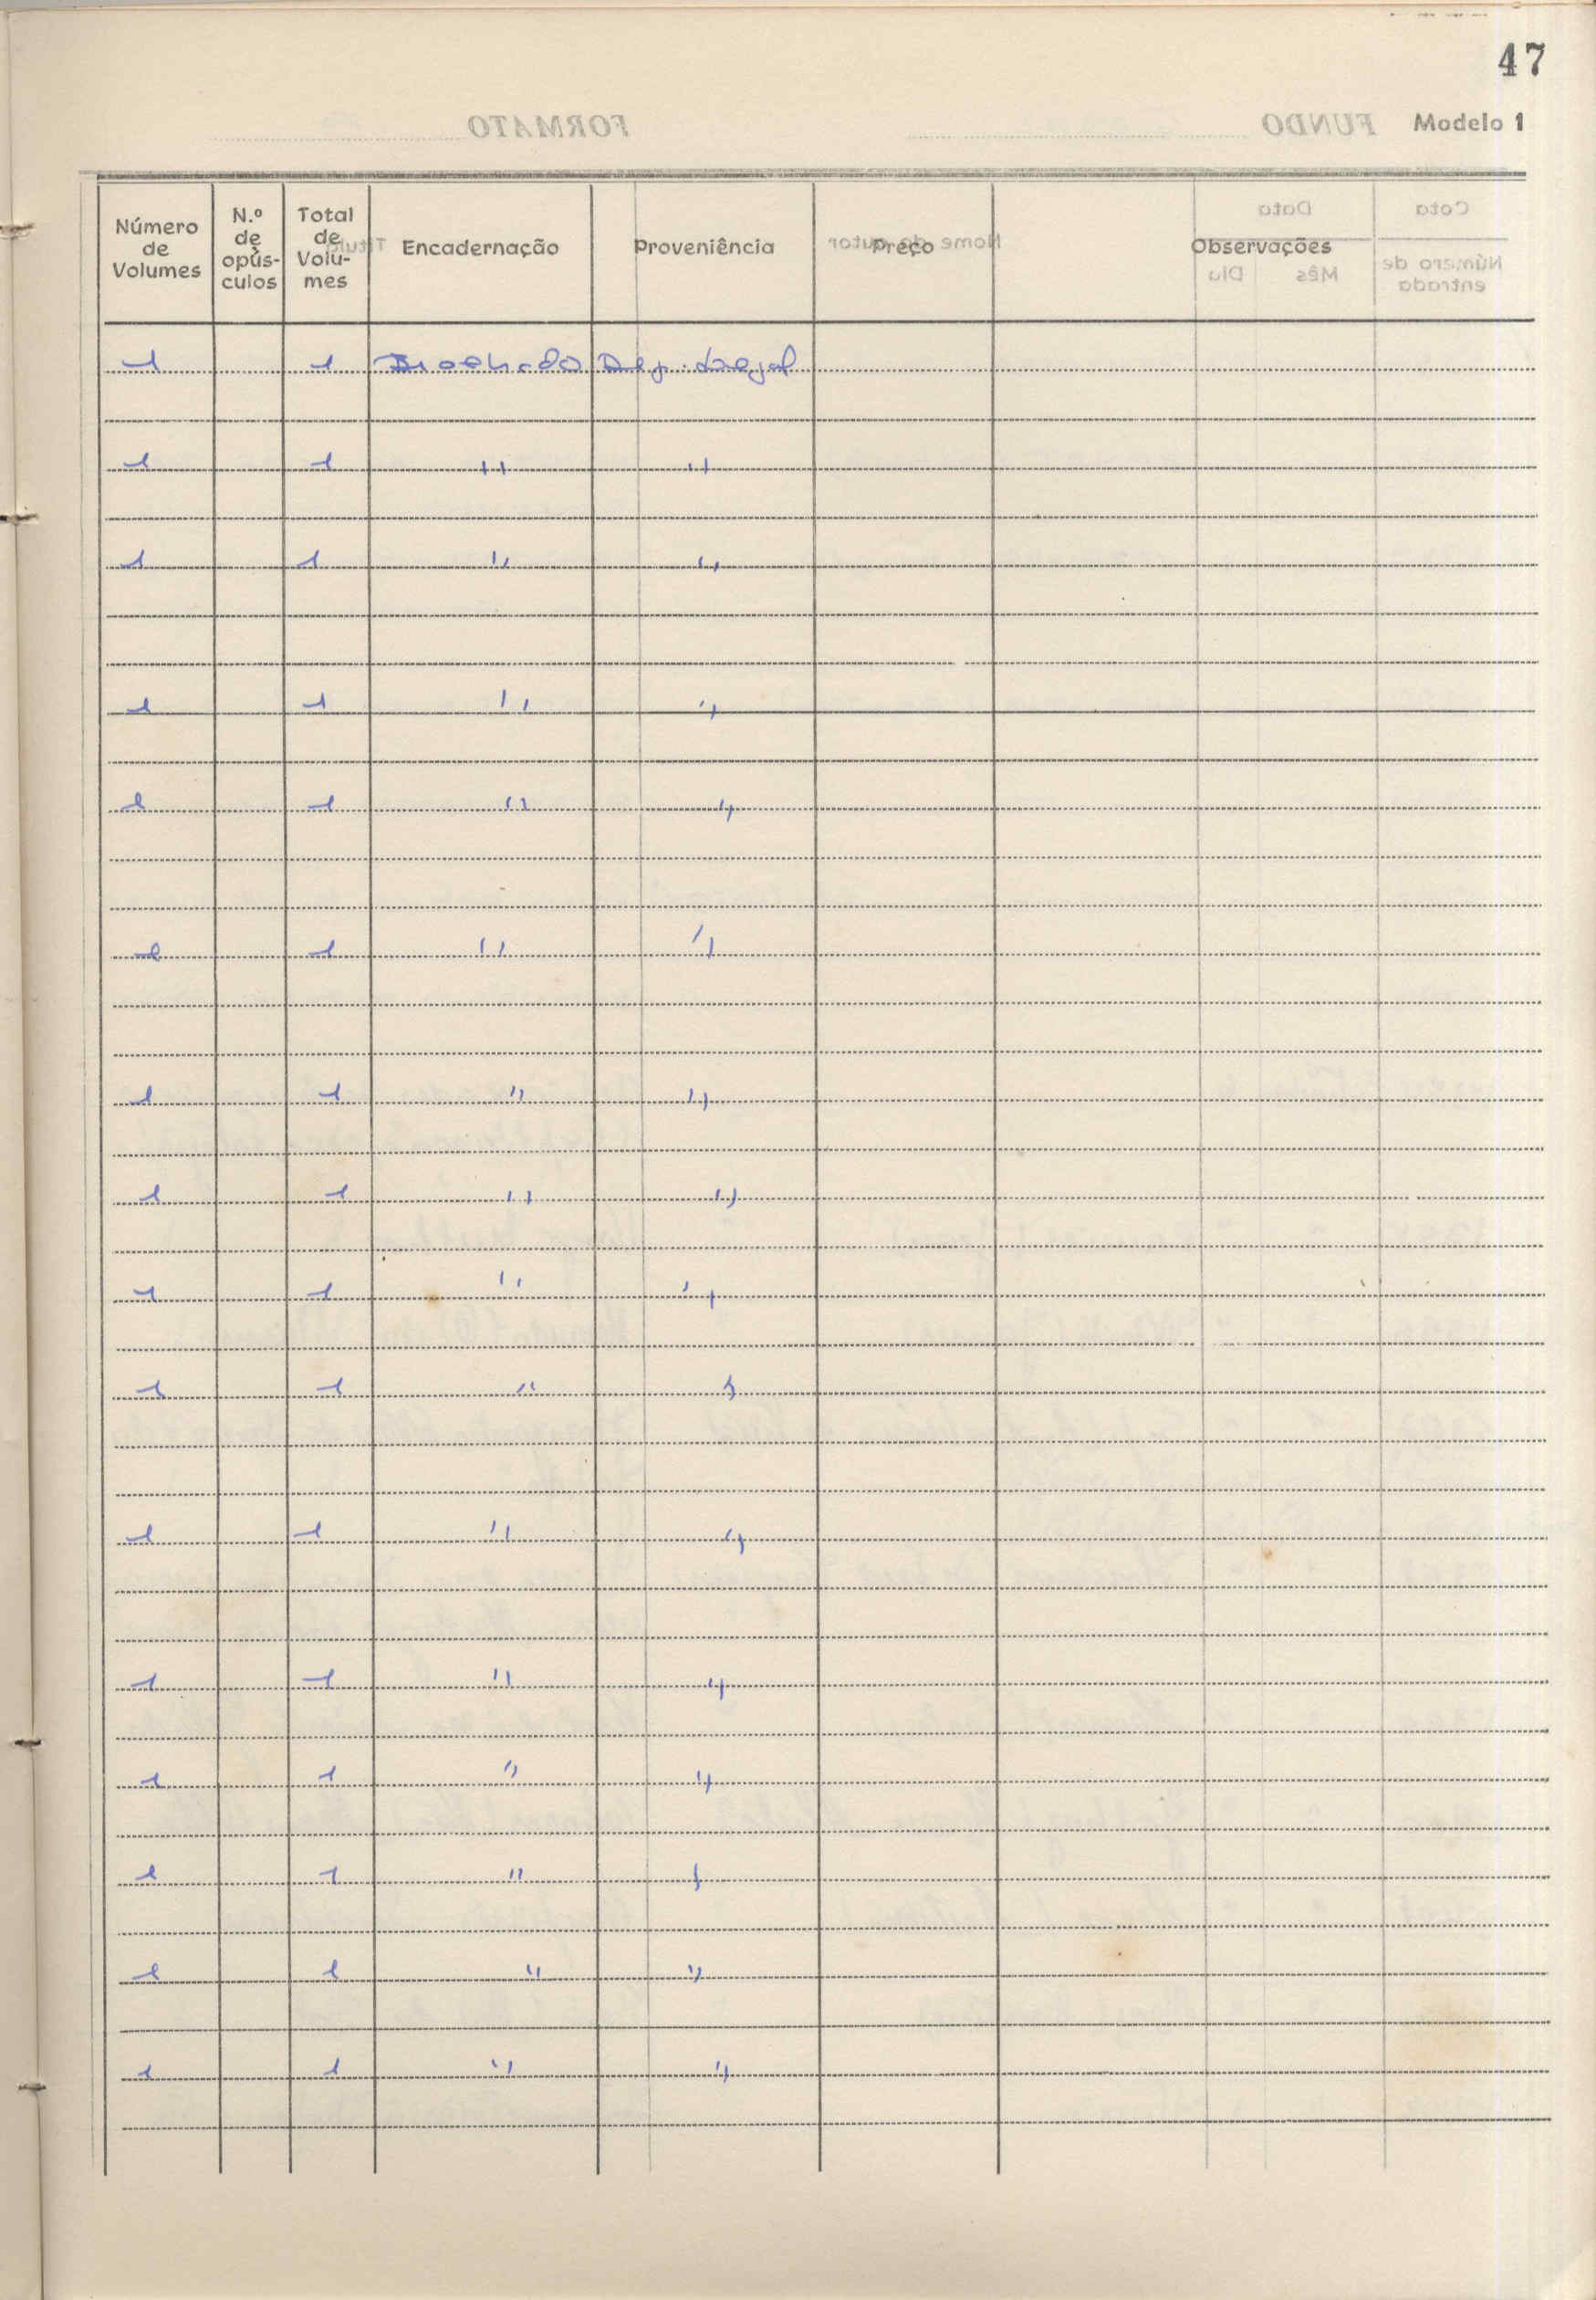 47
Modelo 1
Número de Volumes | N.º de opús-culos | Total de Volu-mes | Encadernação | Proveniência | Preço | Observações
1 | | 1 | Brochado | Dep. Legal
1 | | 1 | " | "
1 | | 1 | " | "
1 | | 1 | " | "
1 | | 1 | " | "
1 | | 1 | " | "
1 | | 1 | " | "
1 | | 1 | " | "
1 | | 1 | " | "
1 | | 1 | " | "
1 | | 1 | " | "
1 | | 1 | " | "
1 | | 1 | " | "
1 | | 1 | " | "
1 | | 1 | " | "
1 | | 1 | " | "